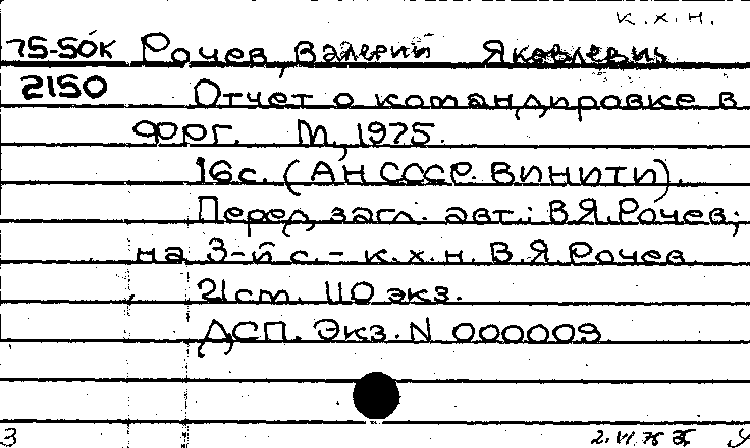 к.х.н.
75-50К Рочев, Валерий Яковлевич
2150 Отчет о командировке в
ФРГ. М., 1975.
16с. (АН СССР. ВИНИТИ).
Перед загл. авт.: В.Я.Рочев;
на 3-й с. - к.х.н. В.Я.Рочев
21см. 110 экз.
ДСП. Экз. N 000009.
3 2.VI.75